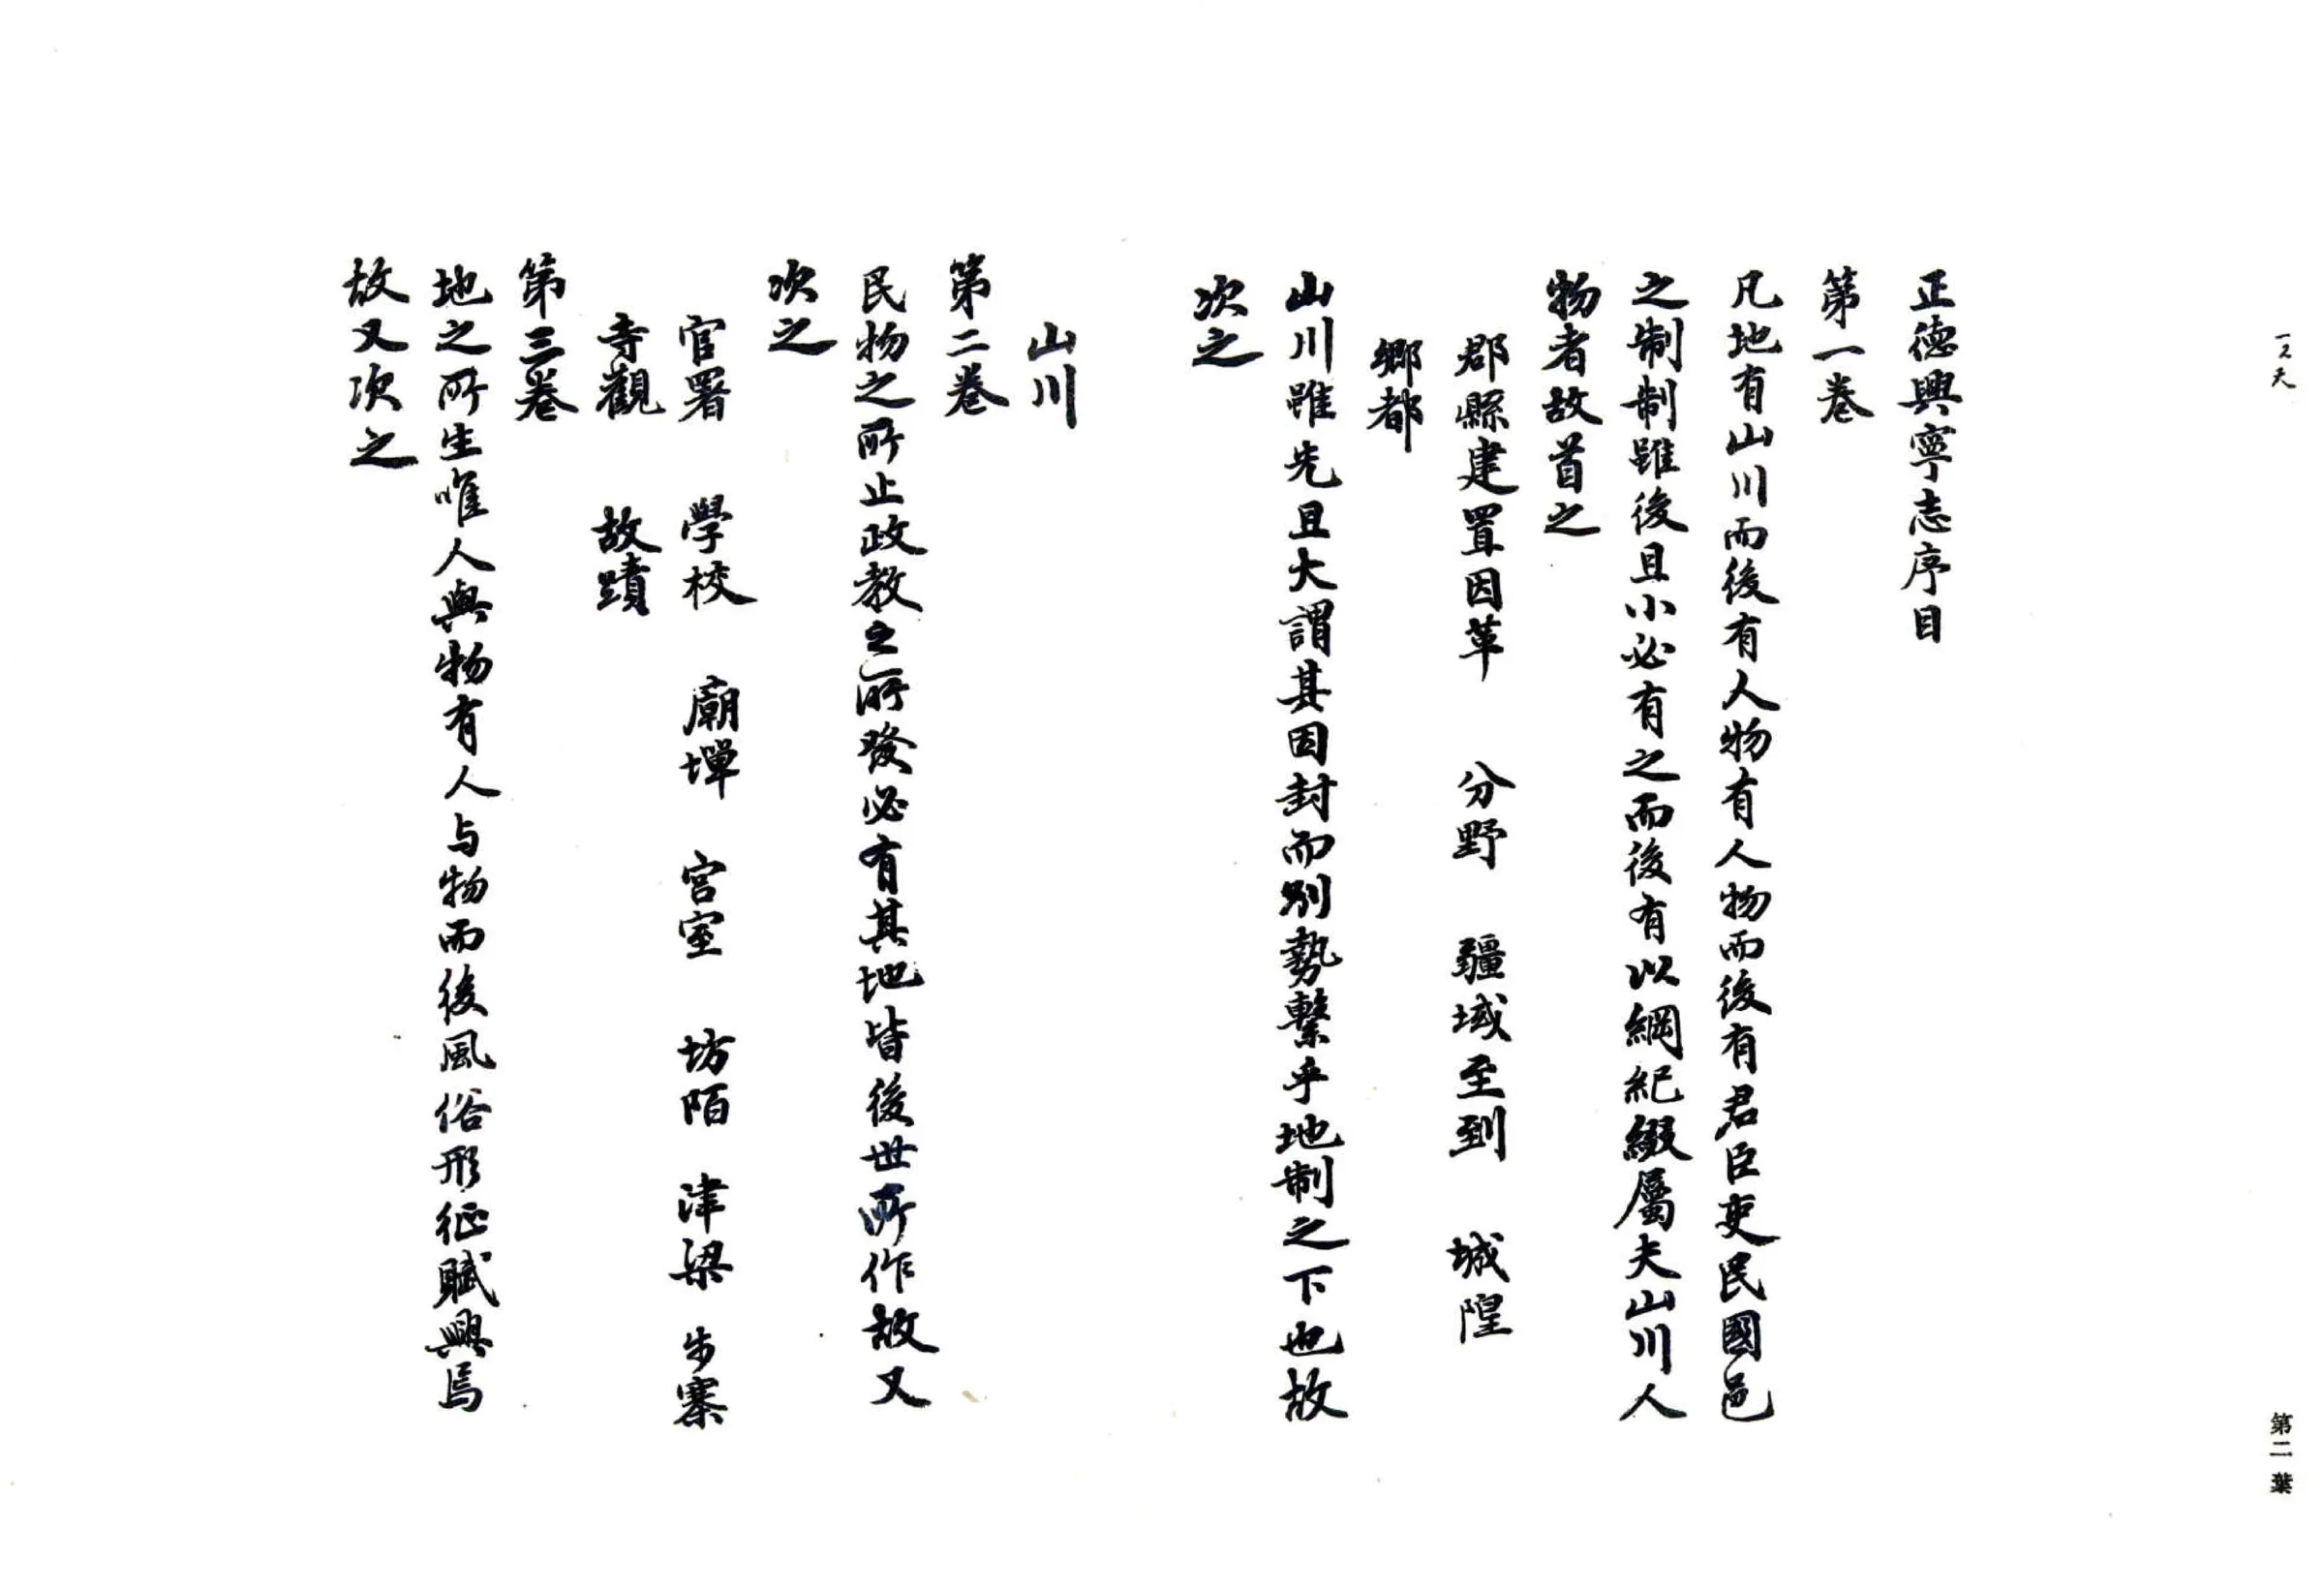 正德興寧志序目
第一卷
凡地有山川而後有人物有人物而後有君臣吏民國邑
之制制雖後且小必有之而後有以綱紀綴屬夫山川人
物者故首之
郡縣建置因革 分野 疆域至到 城隍
鄉都
山川雖先且大謂其因封而別勢繫乎地制之下也故
次之
山川
第二卷
民物之所止政教之所發必有其地皆後世所作故又
次之
官署 學校 廟墠 宮室 坊陌 津梁 步寨
寺觀 故蹟
第三卷
地之所生唯人與物有人与物而後風俗形征賦興焉
故又次之
第二葉